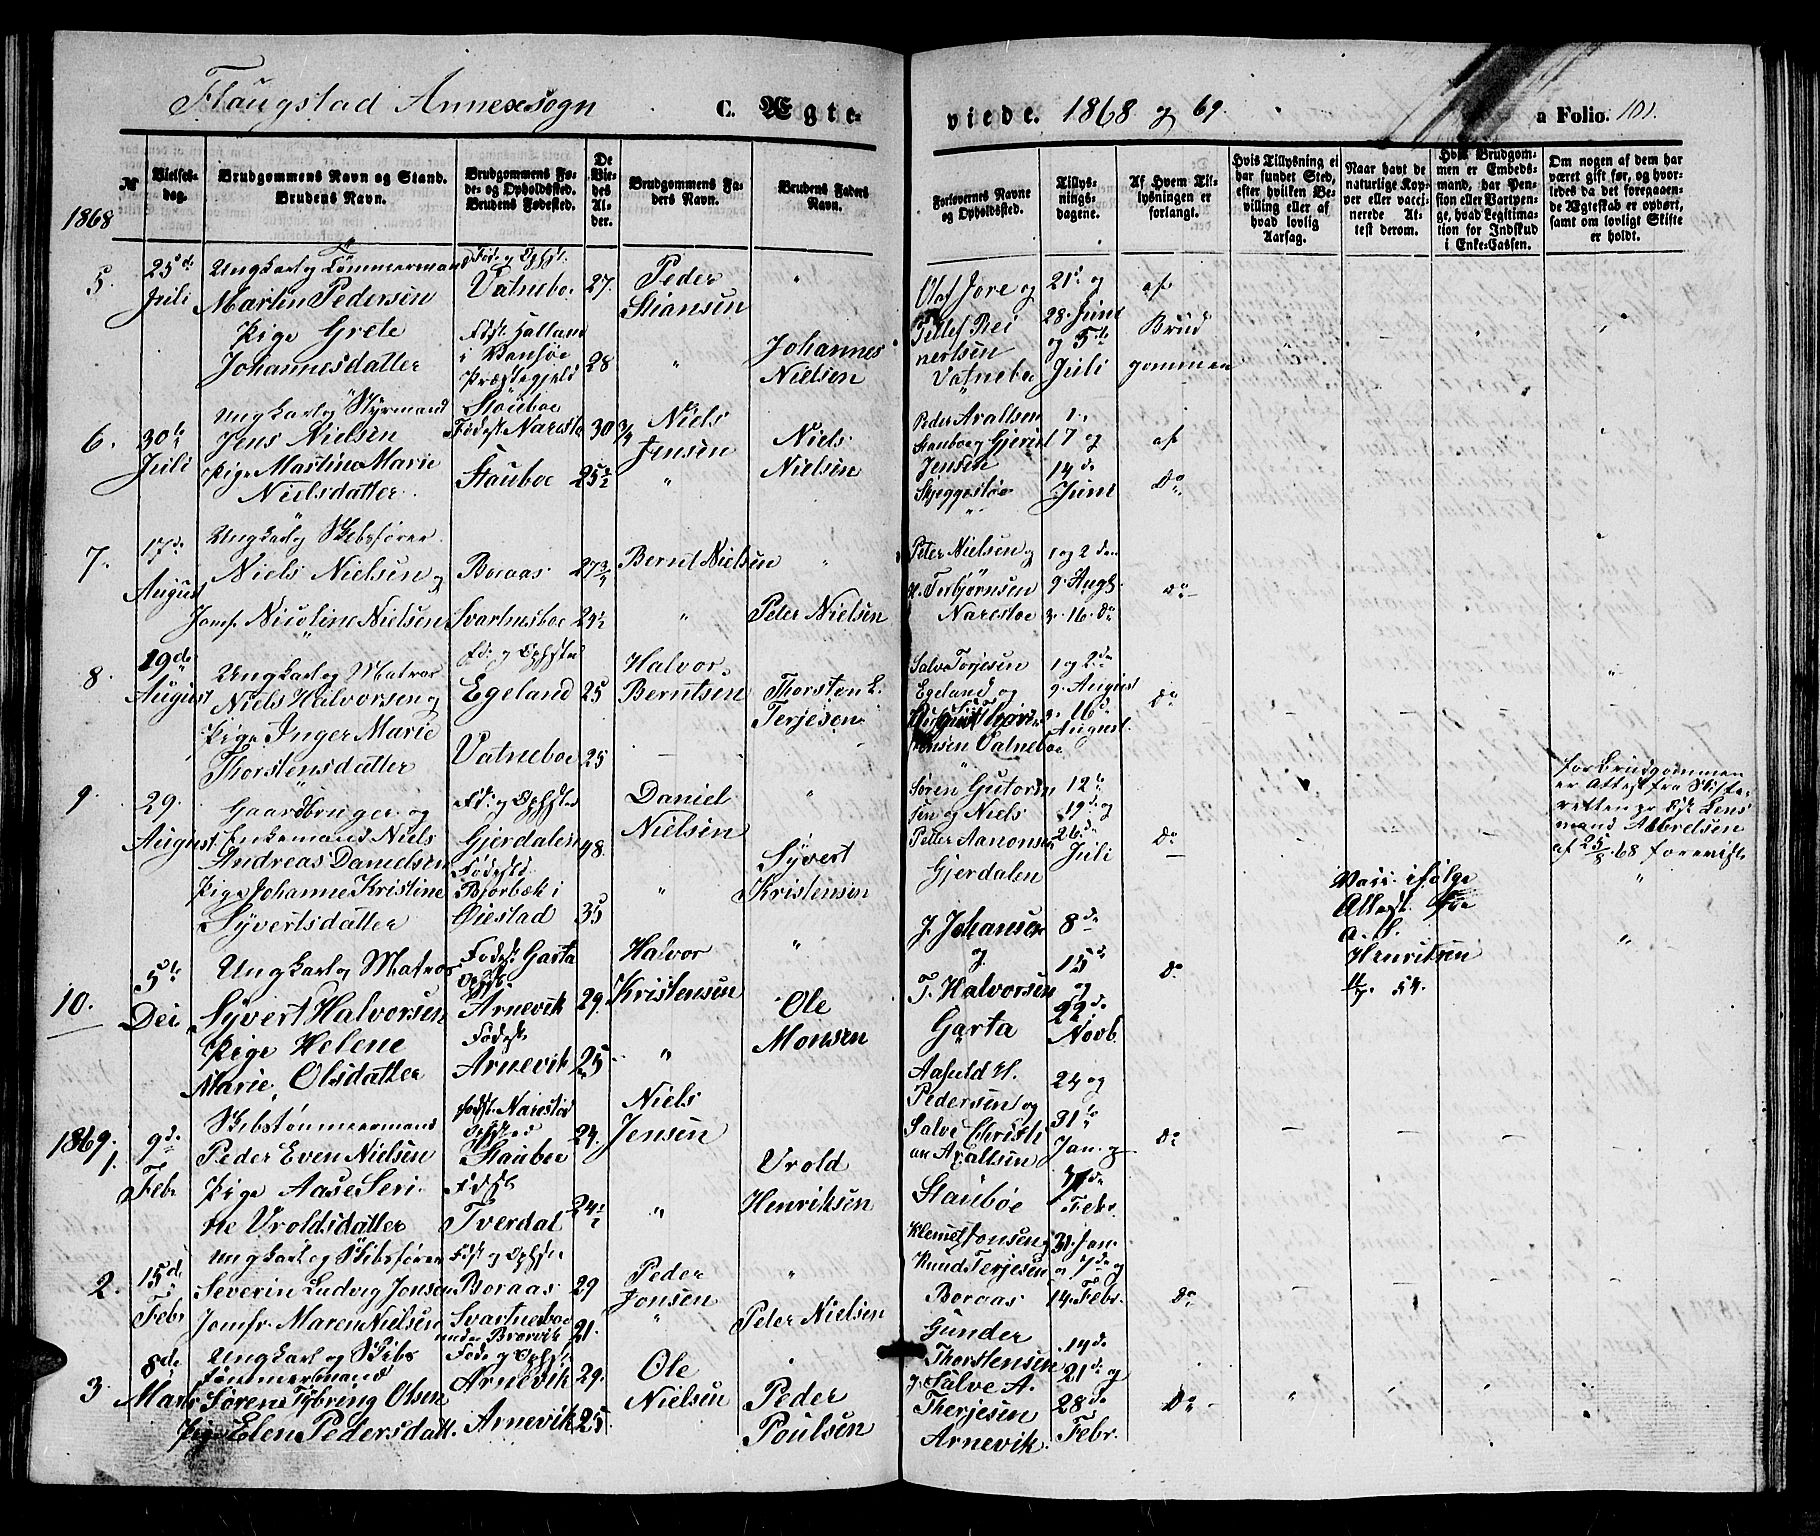 Flaugstad Annexsogn C. Ægte-
viede. 1868 og 69. a Folio. 101.
№
Vielses-
dag.
Brudgommens Navn og Stand.
Brudens Navn.
Brudgommens Fø-
de- og Opholdssted.
Brudens Fødested.
De
Vie-
des
Al-
der.
Brudgommens Fa-
ders Navn.
Brudens Faders
Navn.
Forlovernes Navne
og Opholdssted.
Tillys-
nings-
dagene.
Af Hvem Til-
lysningen er
forlangt.
Hvis Tillysning ei
har fundet Sted,
efter hvilken Be-
villing eller af
hvad lovlig
Aarsag.
Naar havt de
naturlige Kop-
per eller vacci-
nerede At-
test derom.
Hvis Brudgom-
men er Embeds-
mand, har Pen-
sion eller Vartpen-
ge, hvad Legitima-
tion for Indskud
i Enke-Cassen.
Om nogen af dem har
været gift før, og hvor-
ledes da det foregaaen-
de Ægteskab er ophørt,
samt om lovligt Skifte
er holdt.
1868
5. 25de Juli
Ungkarl og Tømmermand
Martin Pedersen
Pige Grete
Johannesdatter
Føde og Ophst.
Vatneboe 27.
Fødst. Halland
i Vansøe
Præstegjeld 28
Peder
Stiansen
Johannes
Nielsen
Olaf Jore og
Tellef Rei
nertsen
Vatneboe
21de og
28. Juni
og 5te
Juli
af
Brud
gommen
6. 30te Juli
Ungkarl og Styrmand
Jens Nielsen
Pige Martine Marie
Nielsdatter
Stauboe
Fødest. Narestø 30 3/4
Stauboe 25½
Niels
Jensen
Niels
Nielsen
Peder Axaltsen
Stauboe og Gjerul
Jensen
Skjeggestøe
7 og
14de
Juni
af
Do
7. 17de August
Ungkarl og Skibsfører
Niels Nielsen og
Jomf. Nicoline Nielsen
Boraas 27 3/4
Svartnesboe 24½
Bernt Nielsen
Peter Nielsen
Peter Nielsen og
H. Terbjørnsen
Narestøe
1 og 2den
9. Augt.
3. 16. Do
Do
8. 19de August
Ungkarl og Matros
Niels Halvorsen og
Pige Inger Marie
Thorstensdatter
Fød. og Ophsted
Egeland 25
Vatneboe 25
Halvor
Berntsen
Thorsten L.
Terjesen
Salve Torjesen
Egeland og
Vatneboe
1 og 2de
9. August
3. 16de
August.
Do
9. 29. August
Gaardbruger og
Enkemand Niels
Andreas Danielsen
Pige Johanne Kristine
Syvertsdatter
Fød. og Ophsted
Gjerdalen 48.
Fødested
Bjorbæk i
Øiestad 35
Daniel
Nielsen
Syvert
Kristensen
Søren Gutorm
sen og Niels
Petter Aanonsen
Gjerdalen
12te
19de og
26de
Juli
Do
for Brudgommen
er Attest fra Skifte-
retten
mand Albretsen
af 25/8. 68 forevist
10. 5te Dec
Ungkarl og Matros
Syvert Halvorsen
Pige Helene
Marie Olsdatter
Fødest. Garta
Ophst.
Arnevik 29.
Fødest.
Arnevik 25
Halvor
Kristensen
Ole
Monsen
J. Johansen
og
T. Halvorsen
Garta
8de
15de
og
22de
Novb.
Do
Vacc. ifølge
Attest
Henriksen
54.
1869.
1. 9de Febr
Skibstømmermand
Peder Even Nielsen
Pige Aase Seri-
ne Vroldsdatter
Fødst. Narestad
Stauboe 24.
Fødst.
Tverdal 24½
Niels
Jensen
Vrold
Henriksen
Aafeld H.
Pedersen og
Salve Christi
an Axaltsen
Stauboe
24 og
31te
Jan. og
7de
Febr.
Do
2. 15de Febr
Ungkarl og Skibsfører
Severin Ludvig Jonsen
Jomfr. Maren Nielsen
Fødst og Ophsted
Boraas 29
Svartnesboe
under Brorvik 21.
Peder
Jonsen
Peter Nielsen
Klemet Jonsen og
Knud Terjesen
Boraas
31. Jan.
og 7de og
14. Febr.
Do
3. 8de Marts
Ungkarl og Skibs
tømmermand
Søren Tybring Olsen
Pige Elen Pedersdatt.
Føde og Ophst.
Arnevik 29.
Arnevik 25
Ole
Nielsen
Peder
Poulsen
Gunder
Thorstensen
og Salve A.
Therjesen
Arnevik.
14de
21de og
28de
Febr.
Do